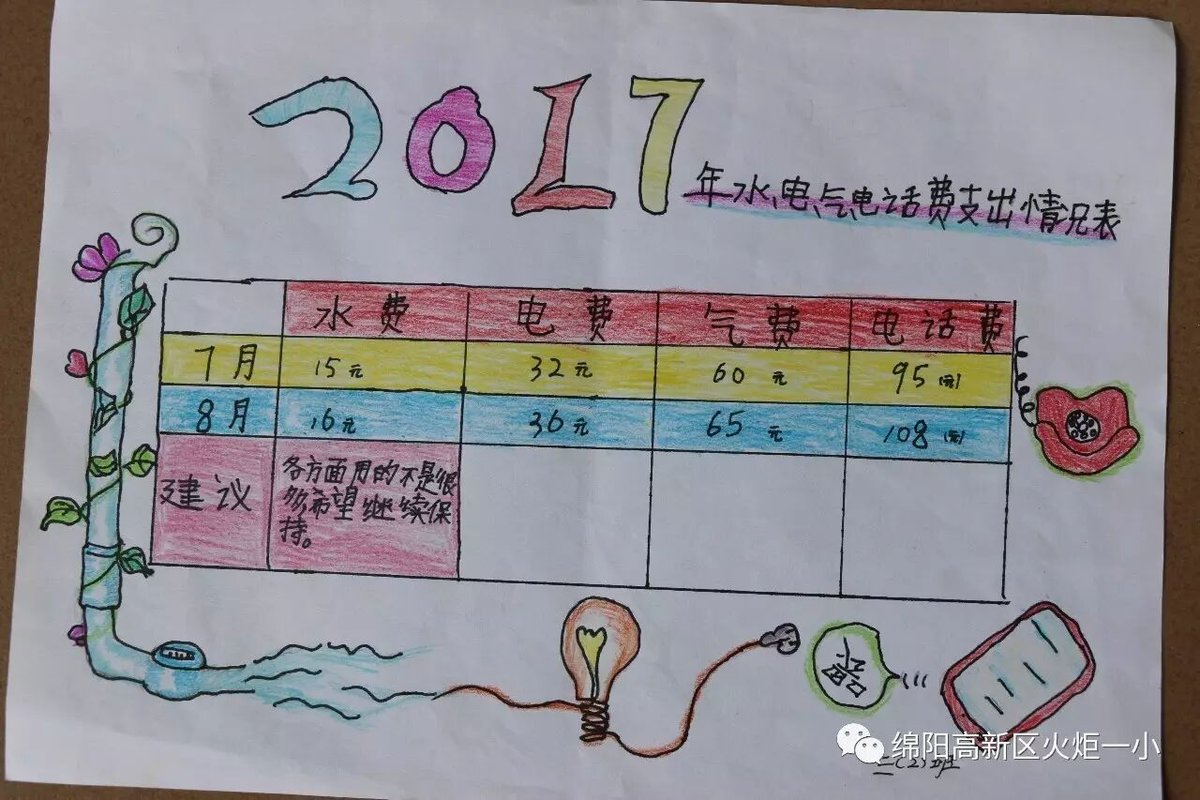 2017年水、电、气、电话费支出情况表
水费 电费 气费 电话费
7月 15元 32元 60元 95(元)
8月 16元 36元 65元 108(元)
建议
各方面用的不是很
多希望继续保
持。
绵阳高新区火炬一小
二(2)班